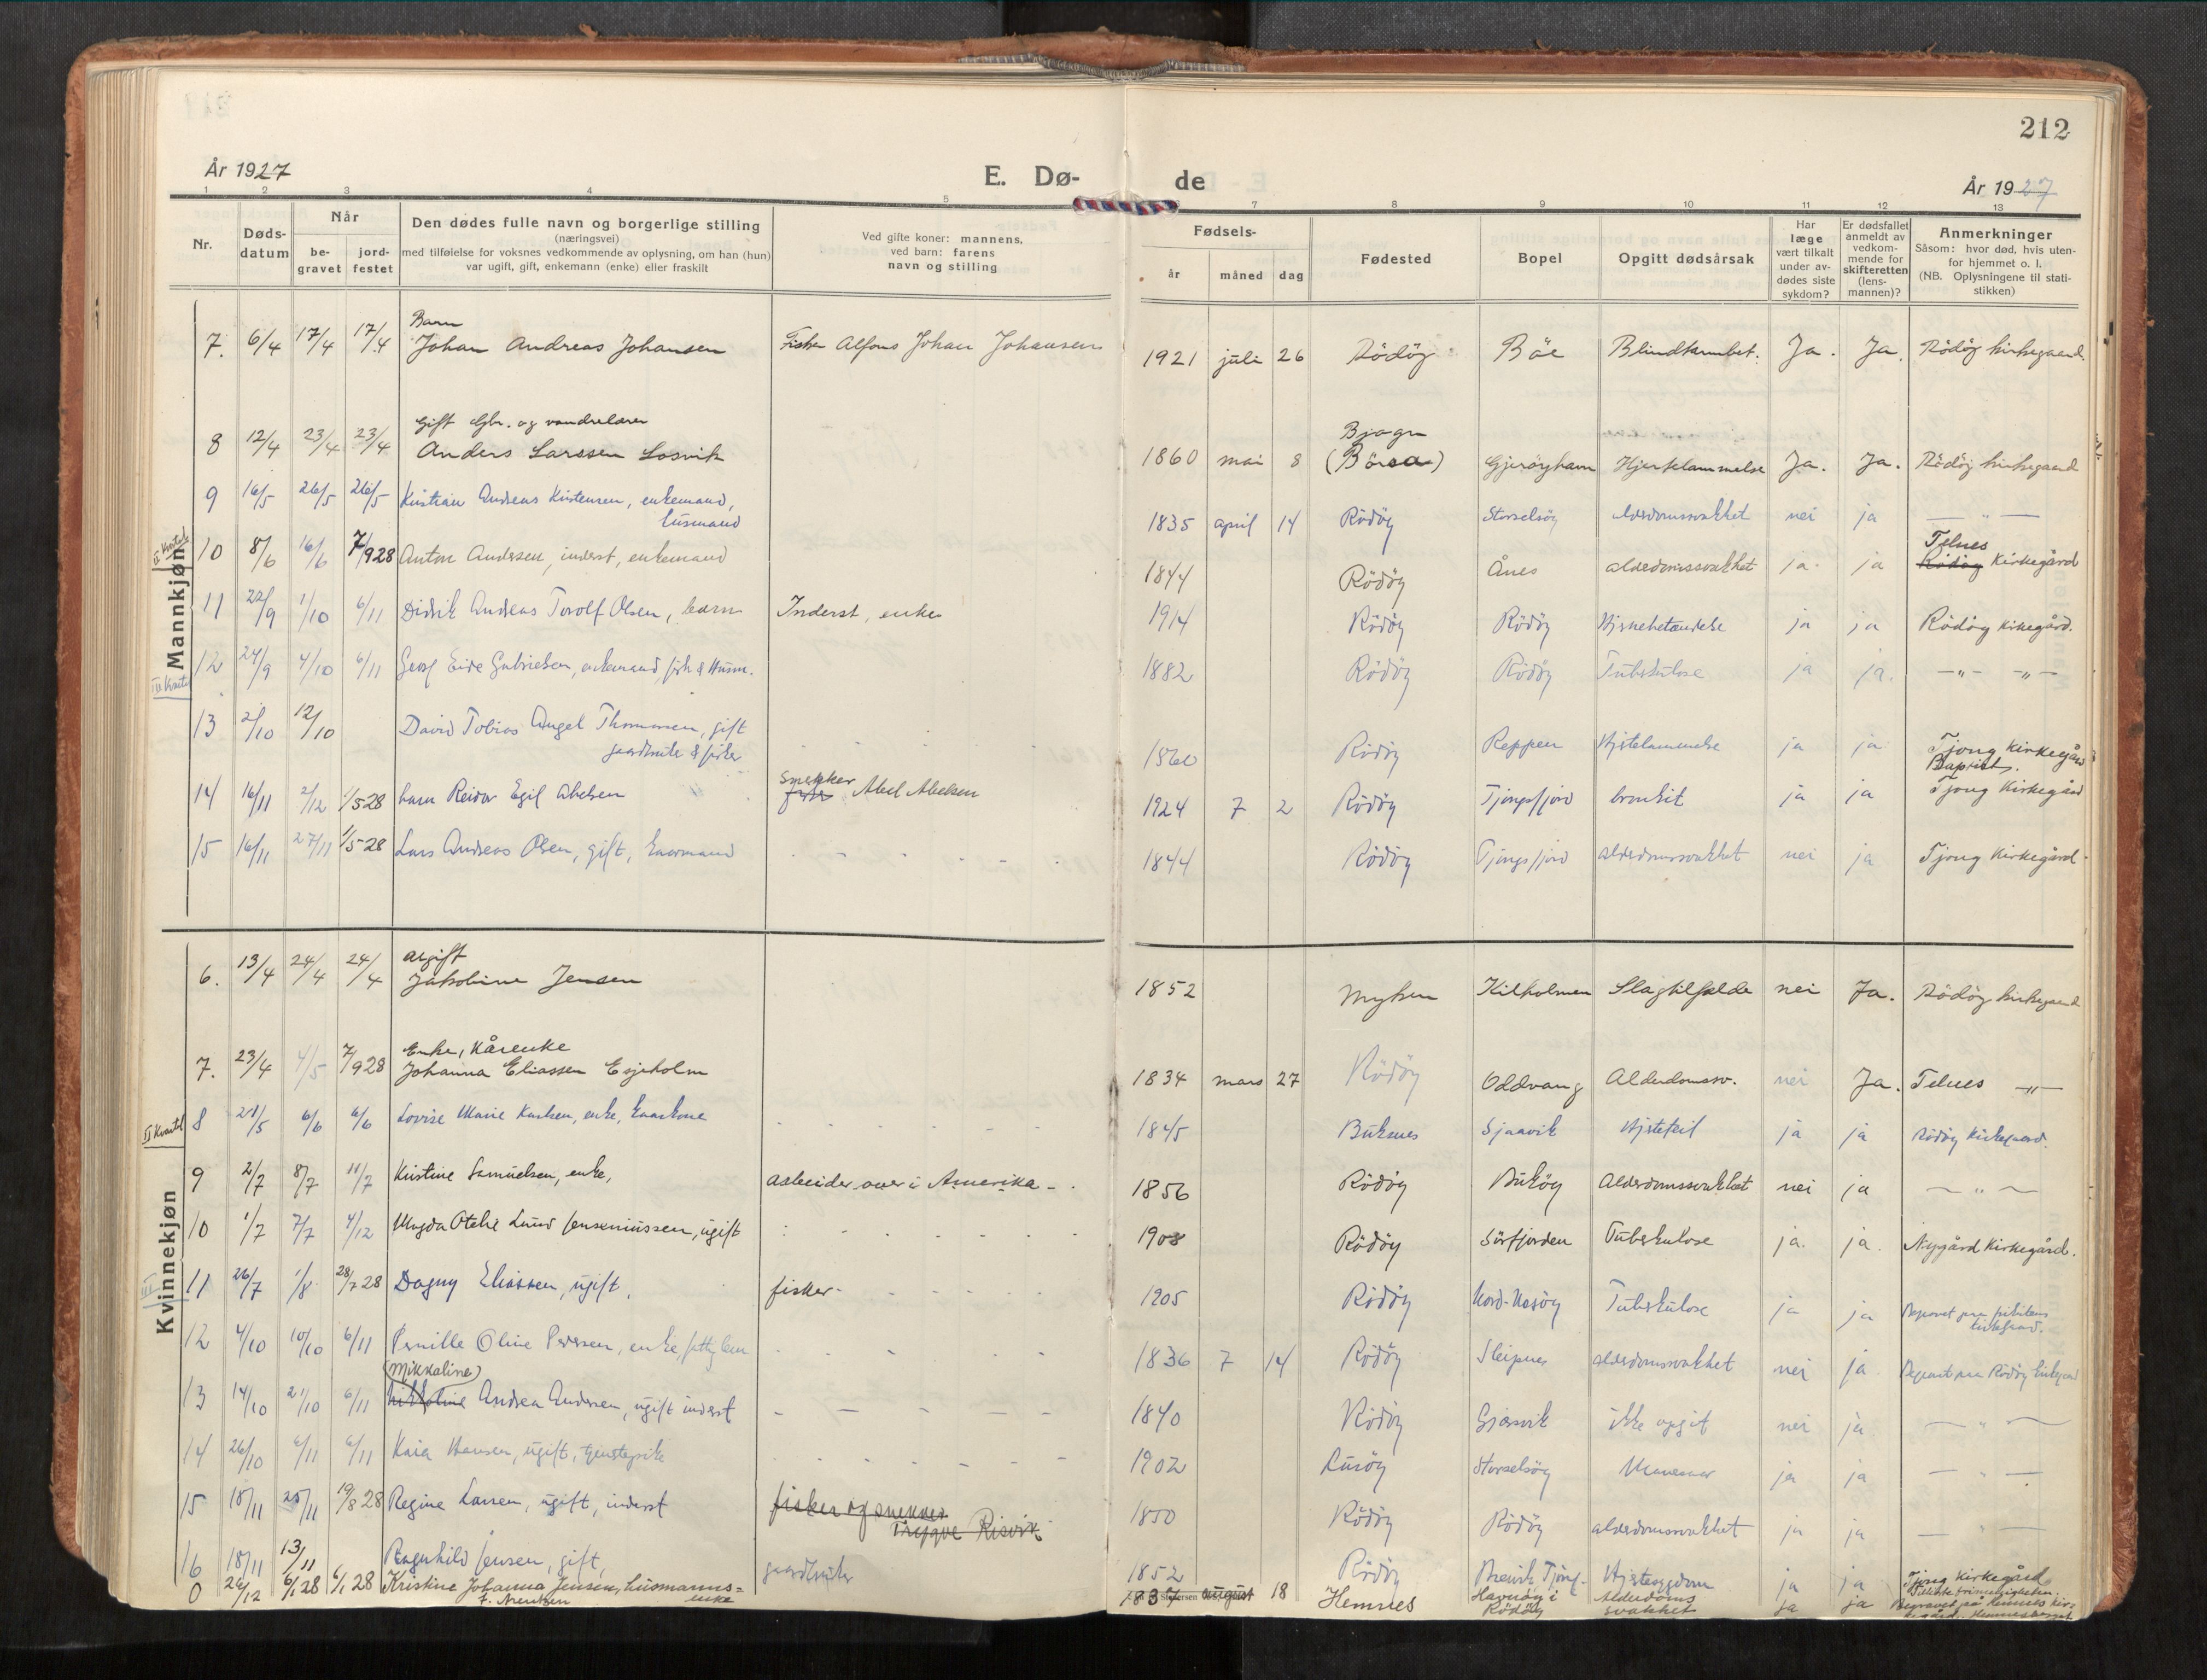 212
År 1927
E. Dø-
de
År 1927
1 2 3 4 5 6 7 8 9 10 11 12 13
Nr.
Døds-
datum
Når
be-
gravet
jord-
festet
Den dødes fulle navn og borgerlige stilling
(næringsvei)
med tilføielse for voksnes vedkommende av oplysning, om han (hun)
var ugift, gift, enkemann (enke) eller fraskilt
Ved gifte koner: mannens,
ved barn: farens
navn og stilling
Fødsels-
år måned dag
Fødested
Bopel
Opgitt dødsårsak
Har
læge
vært tilkalt
under av-
dødes siste
sykdom?
Er dødsfallet
anmeldt av
vedkom-
mende for
skifteretten
(lens-
mannen)?
Anmerkninger
Såsom: hvor død, hvis uten-
for hjemmet o. l.
(NB. Oplysningene til stati-
stikken)
Mannkjøn
Barn
7. 6/4 17/4 17/4 Johan Andreas Johansen Fisker Alfons Johan Johansen 1921 juli 26 Rödöy Böe Blindtarmbet. Ja. Ja. Rödöy kirkegaard.
Gift Gbr. og vandrelærer Bjogn
8 12/4 23/4 23/4 Anders Larssen Losvik 1860 mai 8 (Börsa) Gjeröyhavn Hjertelammelse Ja. Ja. Rödöy kirkegaard
9 16/5 26/5 26/5 Kristian Andreas Kristensen, enkemand,
husmand 1835 april 14 Rödöy Storselsöy Alderdomssvakhet nei ja — " —
II Kvartal
10 8/6 16/6 7/9 28 Anton Andersen, inderst, enkemand 1844 Rödöy Ånes alderdomssvakhet ja. ja Telnes
Rödöy Kirkegård
11 22/9 1/10 6/11 Didrik Andreas Torolf Olsen, barn Inderst, enke 1914 Rödöy Rödöy Hjernebetændelse ja ja Rödöy Kirkegård.
III Kvartal
12 24/9 4/10 6/11 Georg Eide Gabrielsen, enkemand, fisk & Husm. 1882 Rödöy Rödöy Tuberkulose ja ja. —"— —"—
13 2/10 12/10 David Tobias Angel Thommesen, gift
gaardbruker & fisker 1860 Rödöy Reppen Hjertelammelse ja ja Tjong Kirkegård
Baptist.
14 16/11 2/12 1/5 28 barn Reidar Egil Abelsen snekker
fisker Abel Abelsen 1924 7 2 Rödöy Tjongsfjord bronkit ja ja Tjong Kirkegård
15 16/11 27/11 1/5 28 Lars Andreas Olsen, gift, kaarmand 1844 Rödöy Tjongsfjord alderdomssvakhet nei ja Tjong Kirkegård
Kvinnekjøn
ugift
6. 13/4 24/4 24/4 Jakobine Jensen 1852 Myken Kilholmen Slagtilfælde nei Ja. Rödöy kirkegaard
Enke, Kårenke
7. 23/4 4/5 7/9 28 Johanna Eliassen Esjeholm 1834 mars 27 Rödöy Oddvang Alderdomssv. nei Ja. Telnes —"—
II Kvartal
8 21/5 6/6 6/6 Lovise Marie Karlsen, enke, kaarkone 1845 Buksnes Sjaavik Hjertefeil ja ja Rödöy Kirkegaard.
9 2/7 8/7 11/7 Kristine Samuelsen, enke, arbeider over i Amerika 1856 Rödöy Buköy Alderdomssvakhet nei ja — " —
10 1/7 7/7 4/12 Magda Otelie Lund Jenseniussen, ugift 1908 Rödöy Sörfjorden Tuberkulose ja. ja. Nygård Kirkegård.
III
11 26/7 1/8 28/7 28 Dagny Eliassen, ugift, fisker 1905 Rödöy Nord-Nesöy Tuberkulose ja ja
12 4/10 10/10 6/11 Pernille Oline Pedersen, enke, fattiglem 1836 7 14 Rödöy Sleipnes alderdomssvakhet nei ja Begravet paa Rödöy Kirkegaard
(Mikkaline)
13 14/10 21/10 6/11 Mikkoline Andrea Andersen, ugift inderst 1840 Rödöy Gjersvik ikke opgit nei ja — " —
14 26/10 6/11 6/11 Kaia Hansen, ugift, tjenestepike 1902 Lusöy Storselsöy ja ja — " —
15 18/11 25/11 19/8 28 Regine Larsen, ugift, inderst fisker og snekker
Trygve Risvik 1850 Rödöy Rödöy alderdomssvakhet ja ja — " —
16 18/11 13/11 Ragnhild Jensen, gift, gaardbruker 1852 Rödöy Breivik Tjong- Hjertesygdom ja ja Tjong Kirkegård
0 26/12 6/1 28 6/1 28 Kristine Johanna Jensen, husmanns=
enke
f. Arentsen 1837 august 18 Hemnes Havnöy i
Rödöy Alderdoms
svakhet ja ja
Begravet på Hemnes kir=
kegård, Hemnesberget